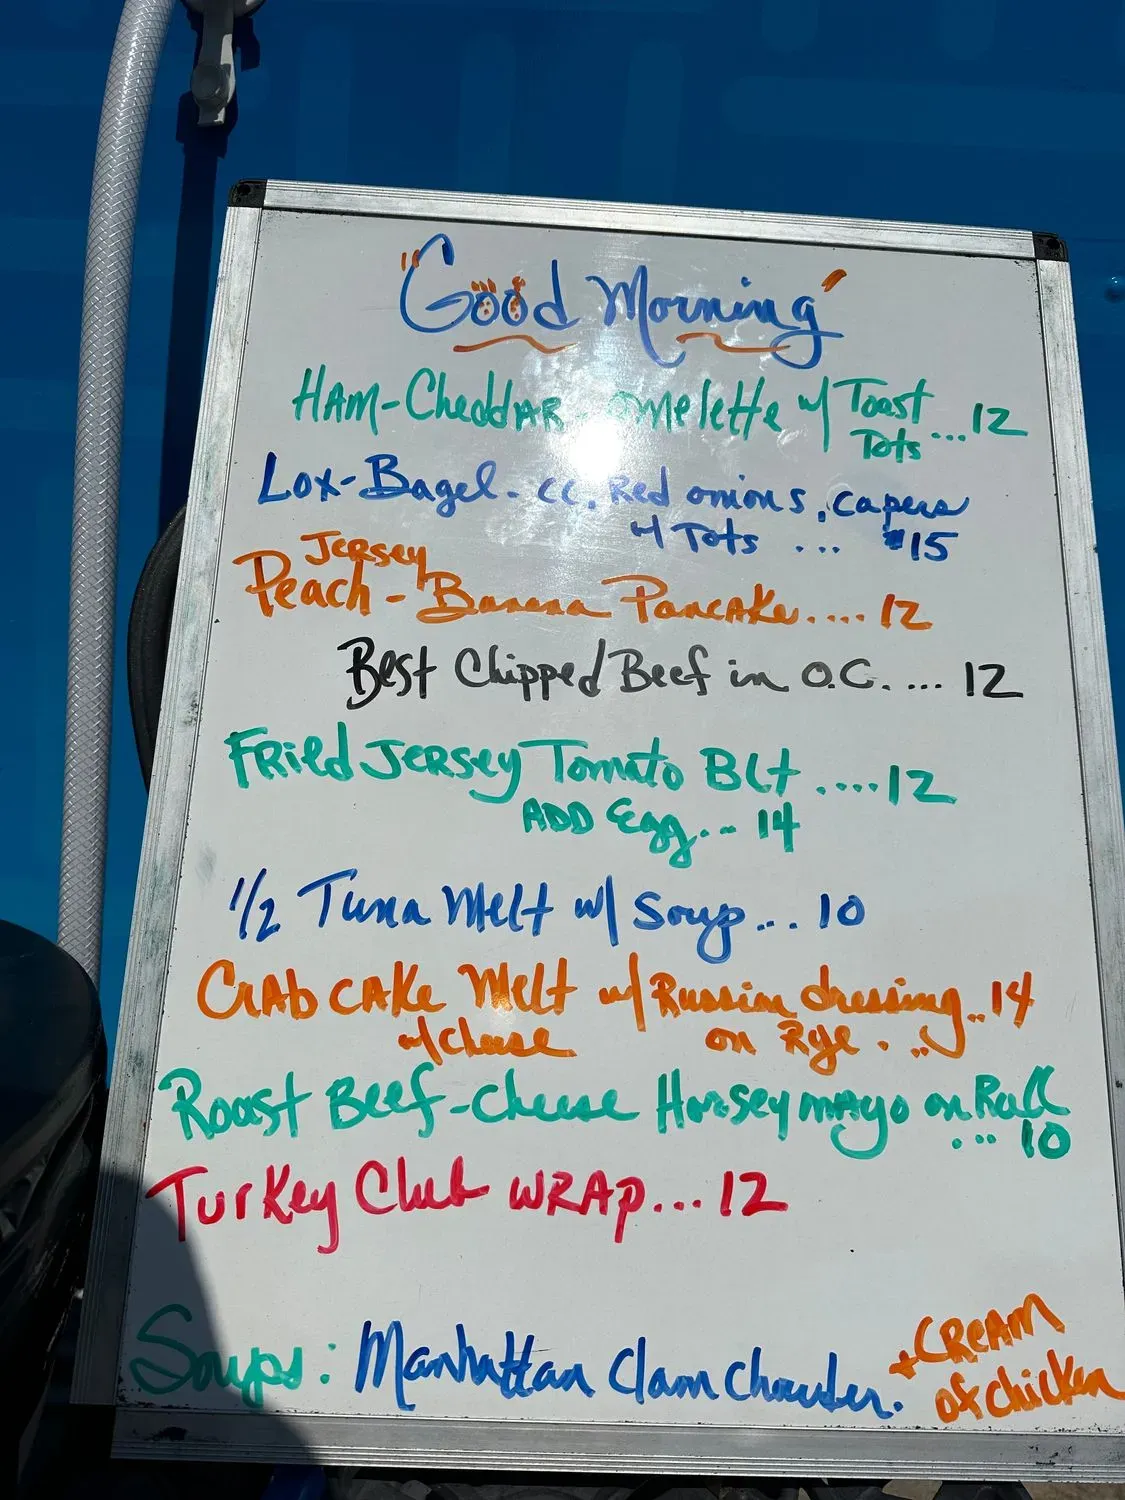 "Good Morning"
HAM-CheddAR omelette w/ Toast ... 12
Tots
Lox-Bagel. CC. Red onions, capers
w/ Tots ... $15
Jersey
Peach - Banana PancAKe .... 12
Best Chipped Beef in O.C. ... 12
FRied JeRsey Tomato Blt .... 12
ADD Egg... 14
1/2 Tuna Melt w/ Soup... 10
CrAb cAKe Melt w/ Russian dressing.. 14
w/ cheese on Rye . ..
Roast Beef-cheese Horsey mAyo on Roll
... 10
TurKey Club WRAp... 12
Soups: Manhattan Clam Chowder. + CReAM
of chicken